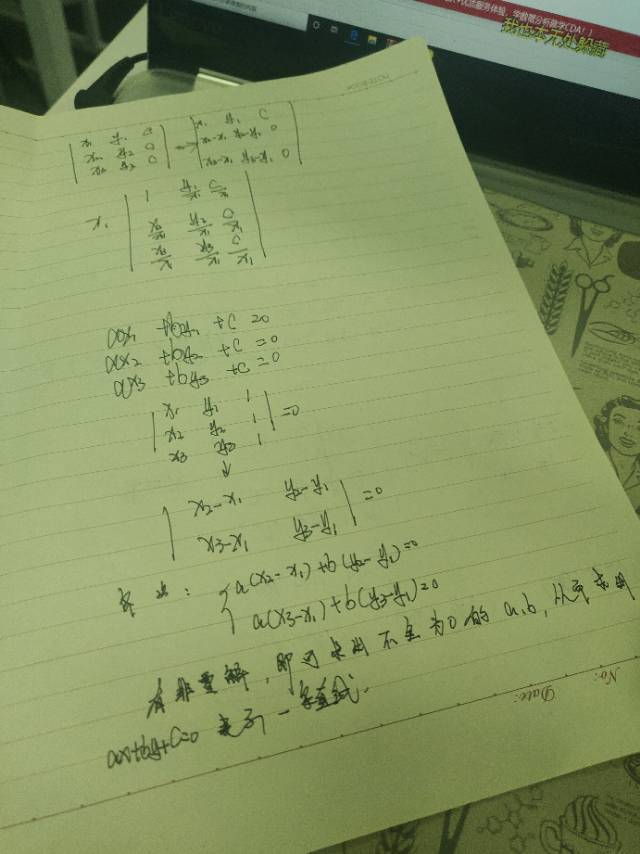 我也本无处躲藏
NOTEBOOK
| x₁ y₁ C | → | x₁ y₁ C |
| x₂ y₂ C | | x₂-x₁ y₂-y₁ 0 |
| x₃ y₃ C | | x₃-x₁ y₃-y₁ 0 |
x₁ | 1 y₁/x₁ C/x₁ |
| x₂/x₁ y₂/x₁ C/x₁ |
| x₃/x₁ y₃/x₁ C/x₁ |
ax₁ + by₁ + C = 0
ax₂ + by₂ + C = 0
ax₃ + by₃ + C = 0
| x₁ y₁ 1 |
| x₂ y₂ 1 | = 0
| x₃ y₃ 1 |
↓
| x₂-x₁ y₂-y₁ |
| x₃-x₁ y₃-y₁ | = 0
{ a(x₂-x₁)+b(y₂-y₁)=0
a(x₃-x₁)+b(y₃-y₁)=0
有非零解，即可求出不全为0的a,b，从而
ax+by+C=0 表示一条直线.
No:
Date: